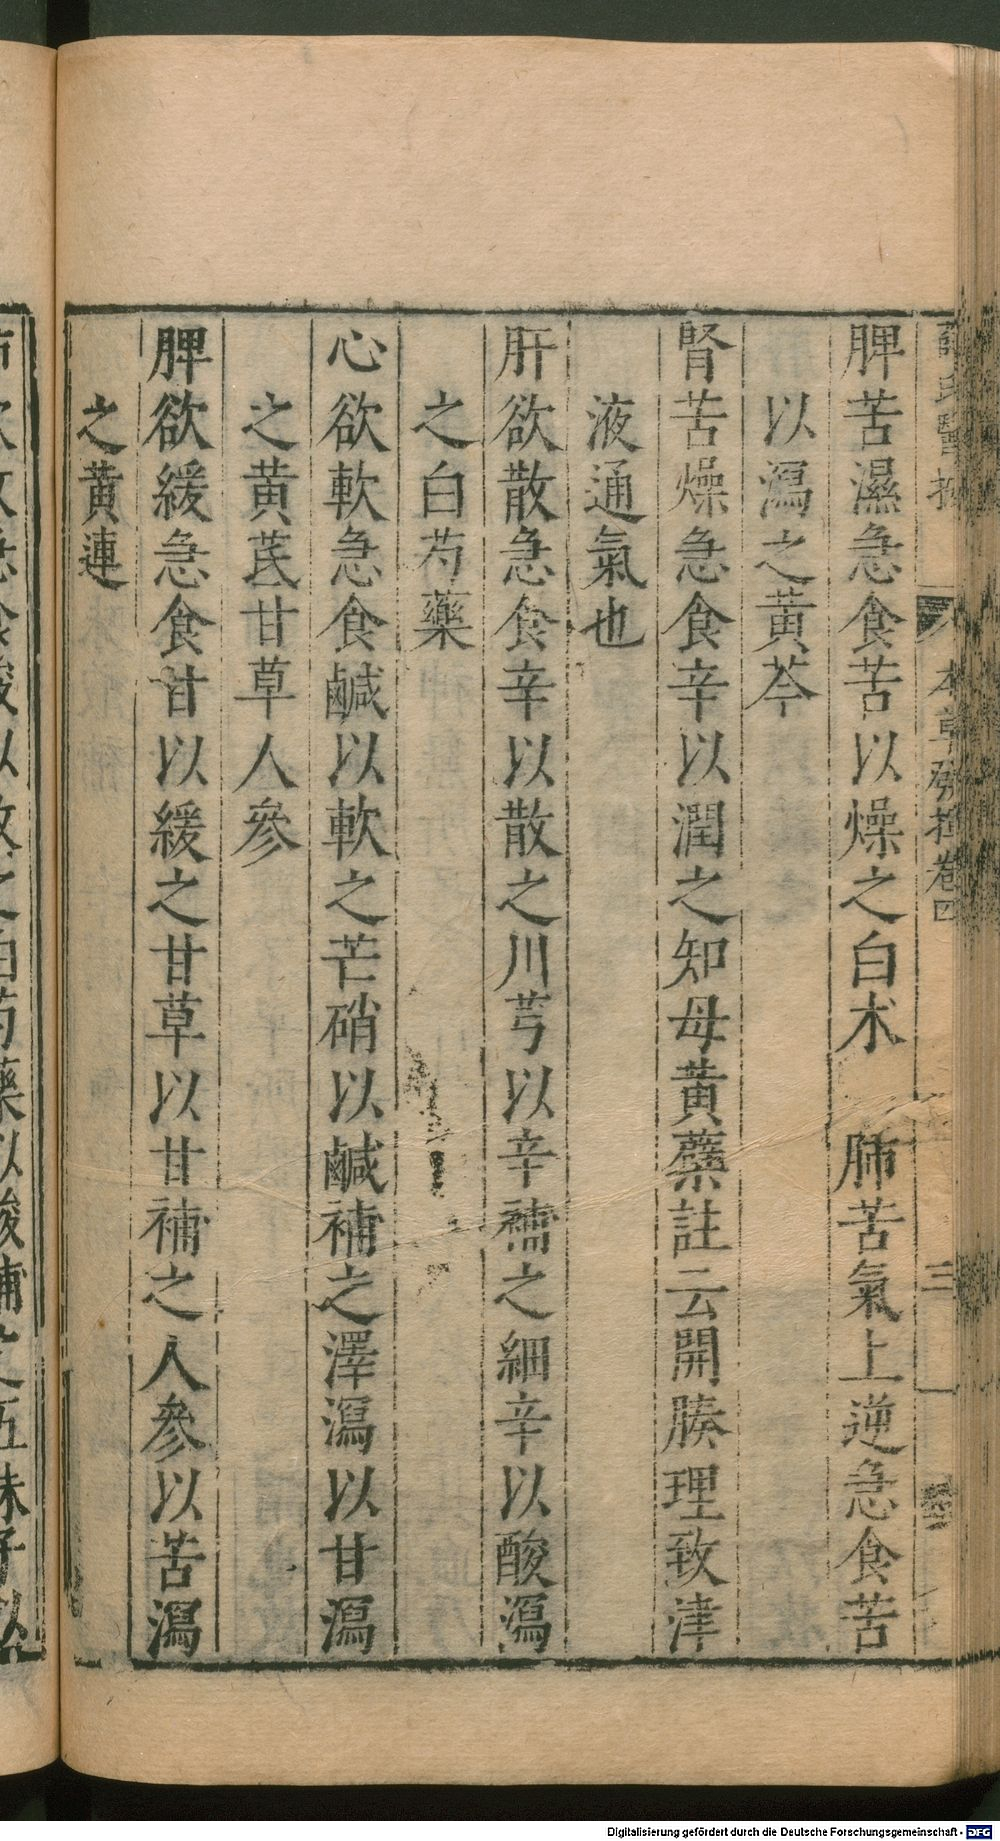 本草發揮卷四
三
脾苦濕急食苦以燥之白朮　肺苦氣上逆急食苦
以瀉之黃芩
腎苦燥急食辛以潤之知母黃蘗註云開腠理致津
液通氣也
肝欲散急食辛以散之川芎以辛補之細辛以酸瀉
之白芍藥
心欲軟急食鹹以軟之芒硝以鹹補之澤瀉以甘瀉
之黃茋甘草人參
脾欲緩急食甘以緩之甘草以甘補之人參以苦瀉
之黃連
Digitalisierung gefördert durch die Deutsche Forschungsgemeinschaft - DFG